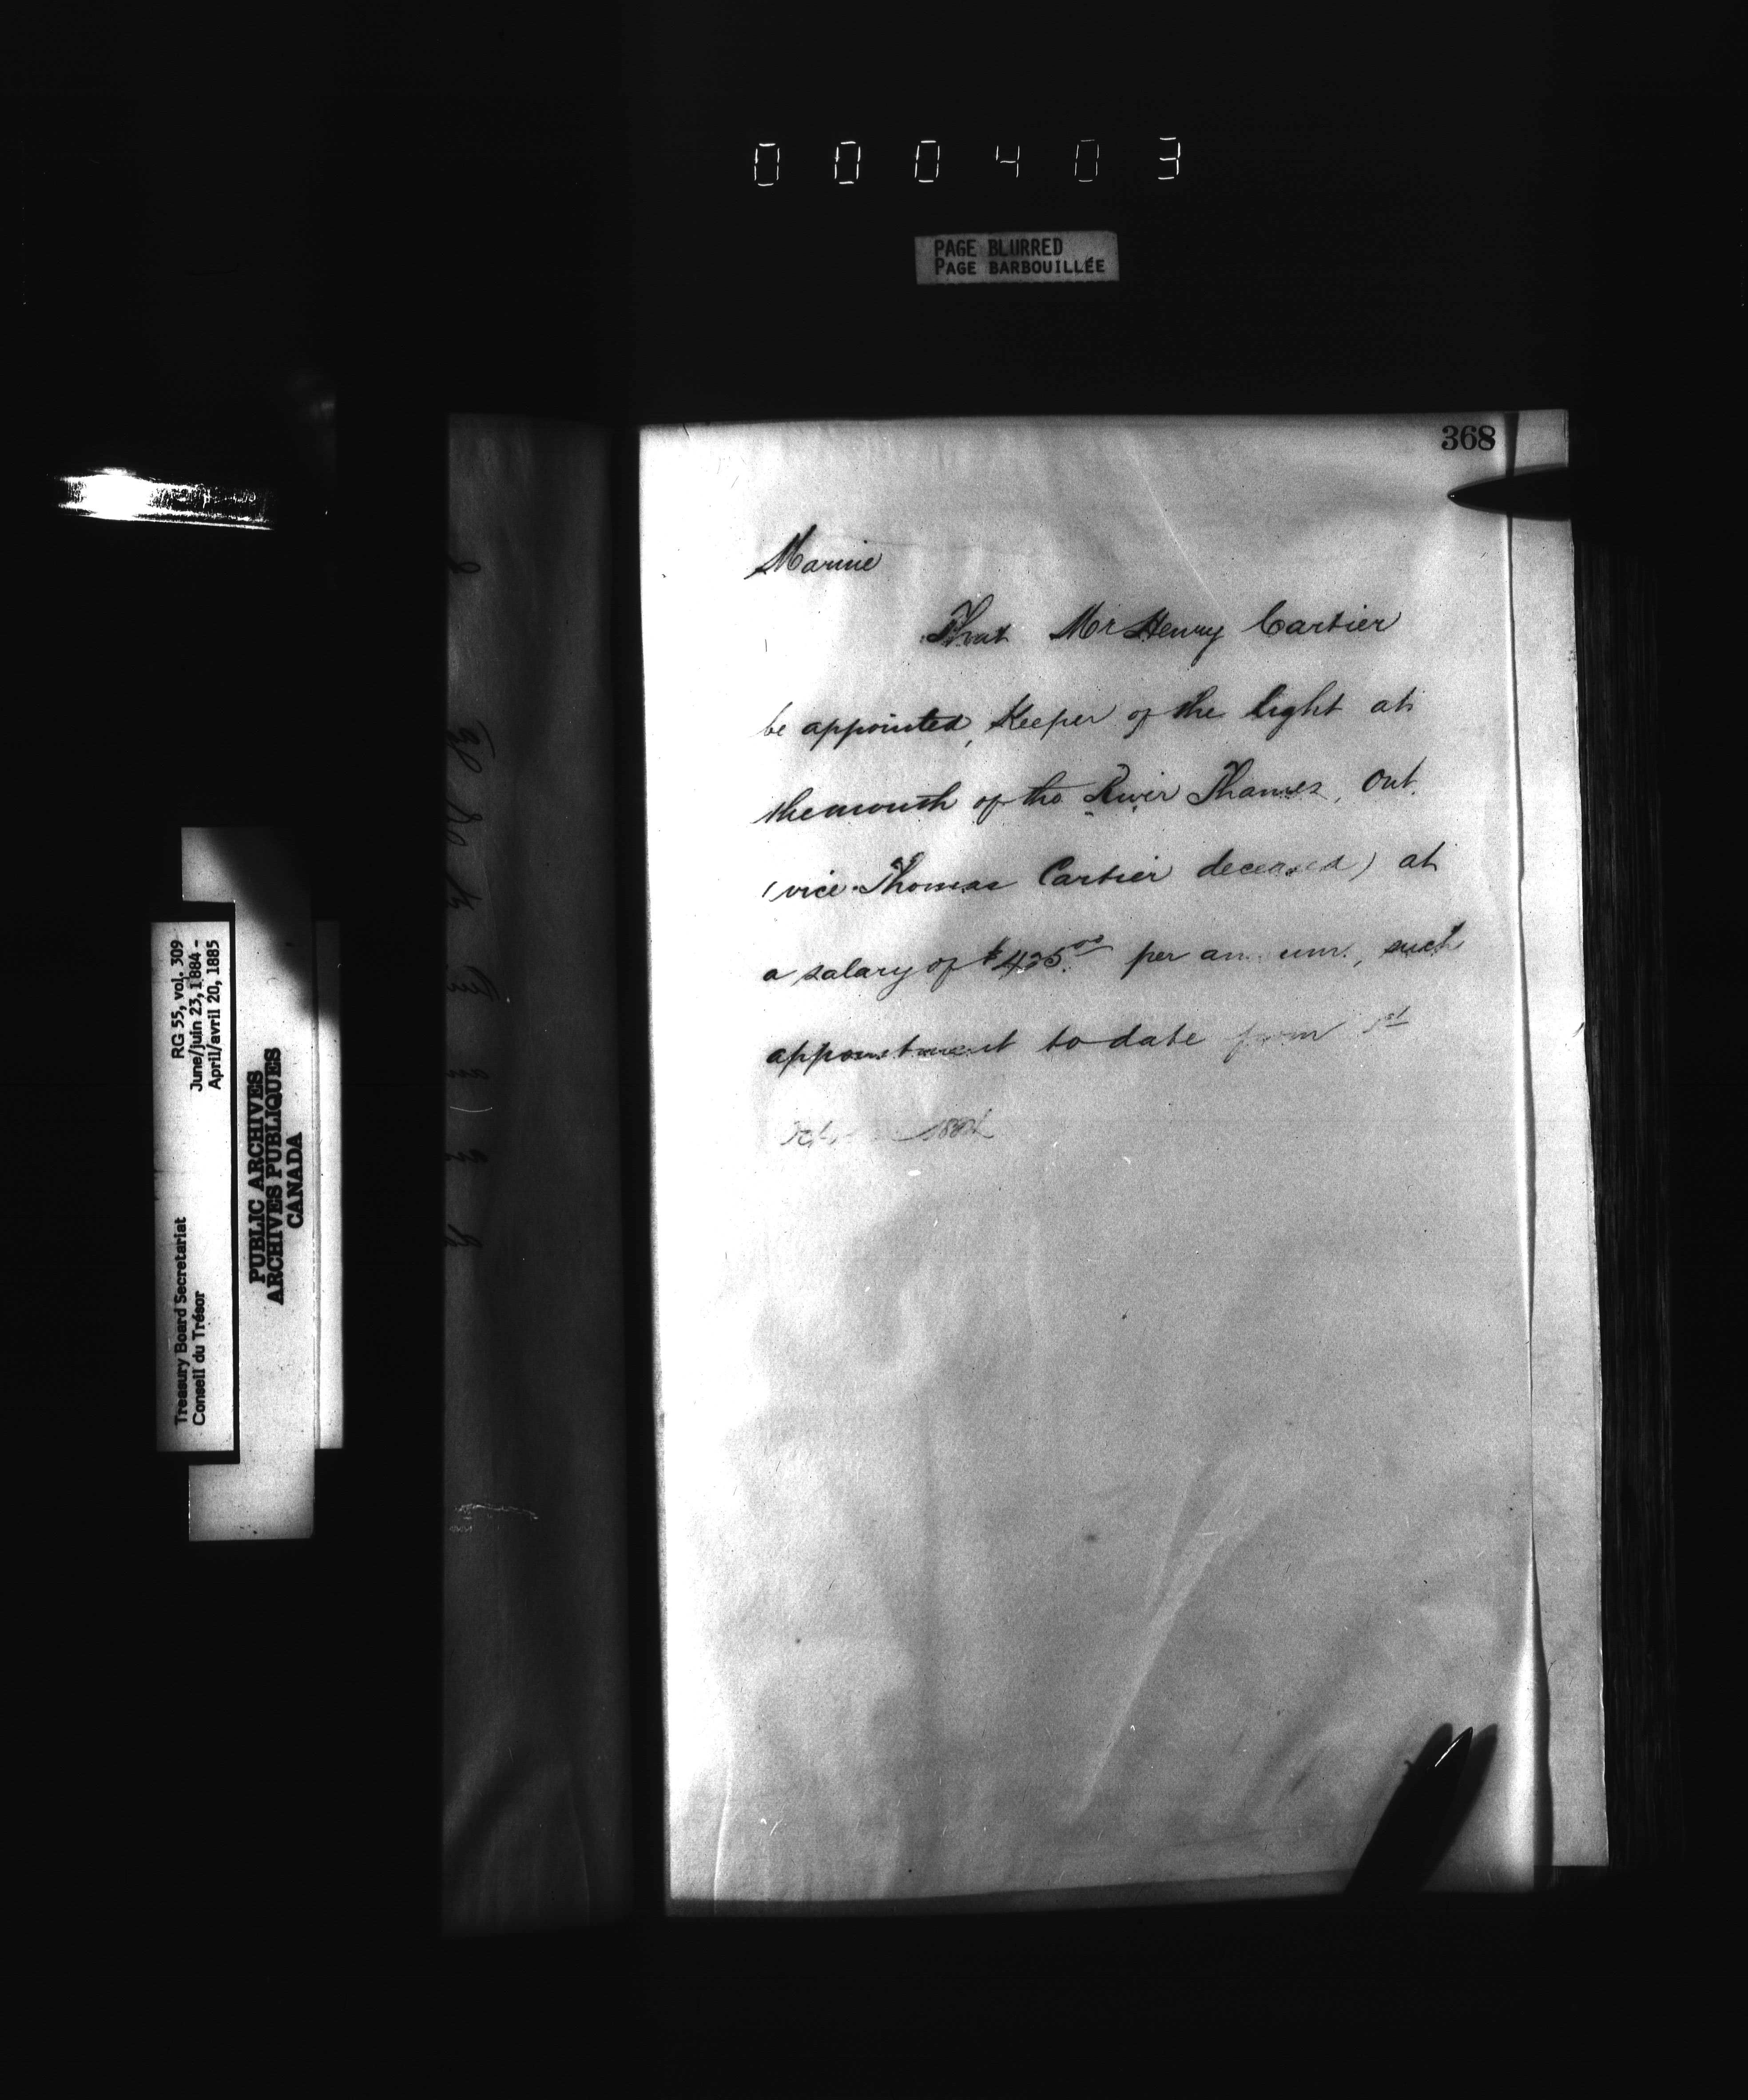 000403
PAGE BLURRED
PAGE BARBOUILLÉE
368
Marine
That Mr Henry Cartier
be appointed, Keeper of the light at
the mouth of the River Thames, Ont.
(vice Thomas Cartier deceased) at
a salary of $435.00 per annum, such
appointment to date from 1st
1884
RG 55, vol. 309
June/juin 23, 1884 -
April/avril 20, 1885
Treasury Board Secretariat
Conseil du Trésor
PUBLIC ARCHIVES
ARCHIVES PUBLIQUES
CANADA